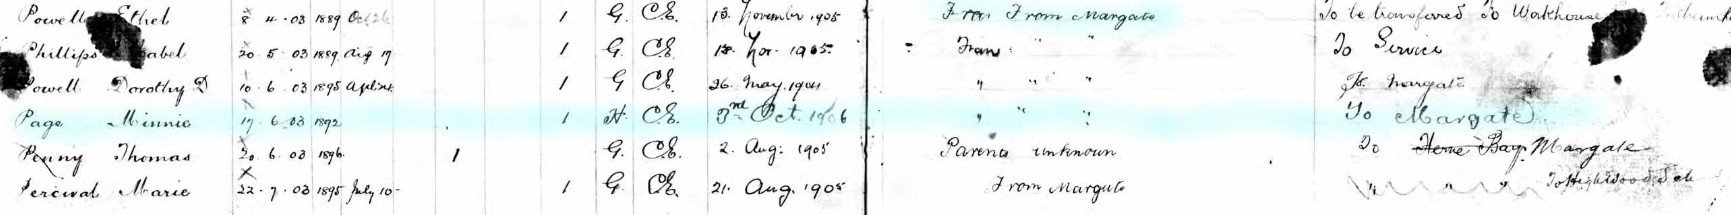 Powell Ethel 8 4 · 03 1889 Oct 26 1 G. C.E. 13. November 1905 Trans From Margate To be transferred To Workhouse
Phillips abel 20 · 5 · 03 1889 Aug 19 1 G. C.E. 13. Nov. 1905 Trans " " To Service
Powell Dorothy D 10 · 6 · 03 1895 1 G C.E. 26. May. 1904 " " " To Margate
Page Minnie 17 · 6 · 03 1892 1 H. C.E. 3rd Oct. 1906 " " " To Margate
Penny Thomas 20 · 6 · 03 1896 1 G. C.E. 2. Aug. 1905 Parents unknown To Herne Bay. Margate
Percival Marie 22 · 7 · 03 1895 July 10 1 G. C.E. 21. Aug. 1905 From Margate " " "